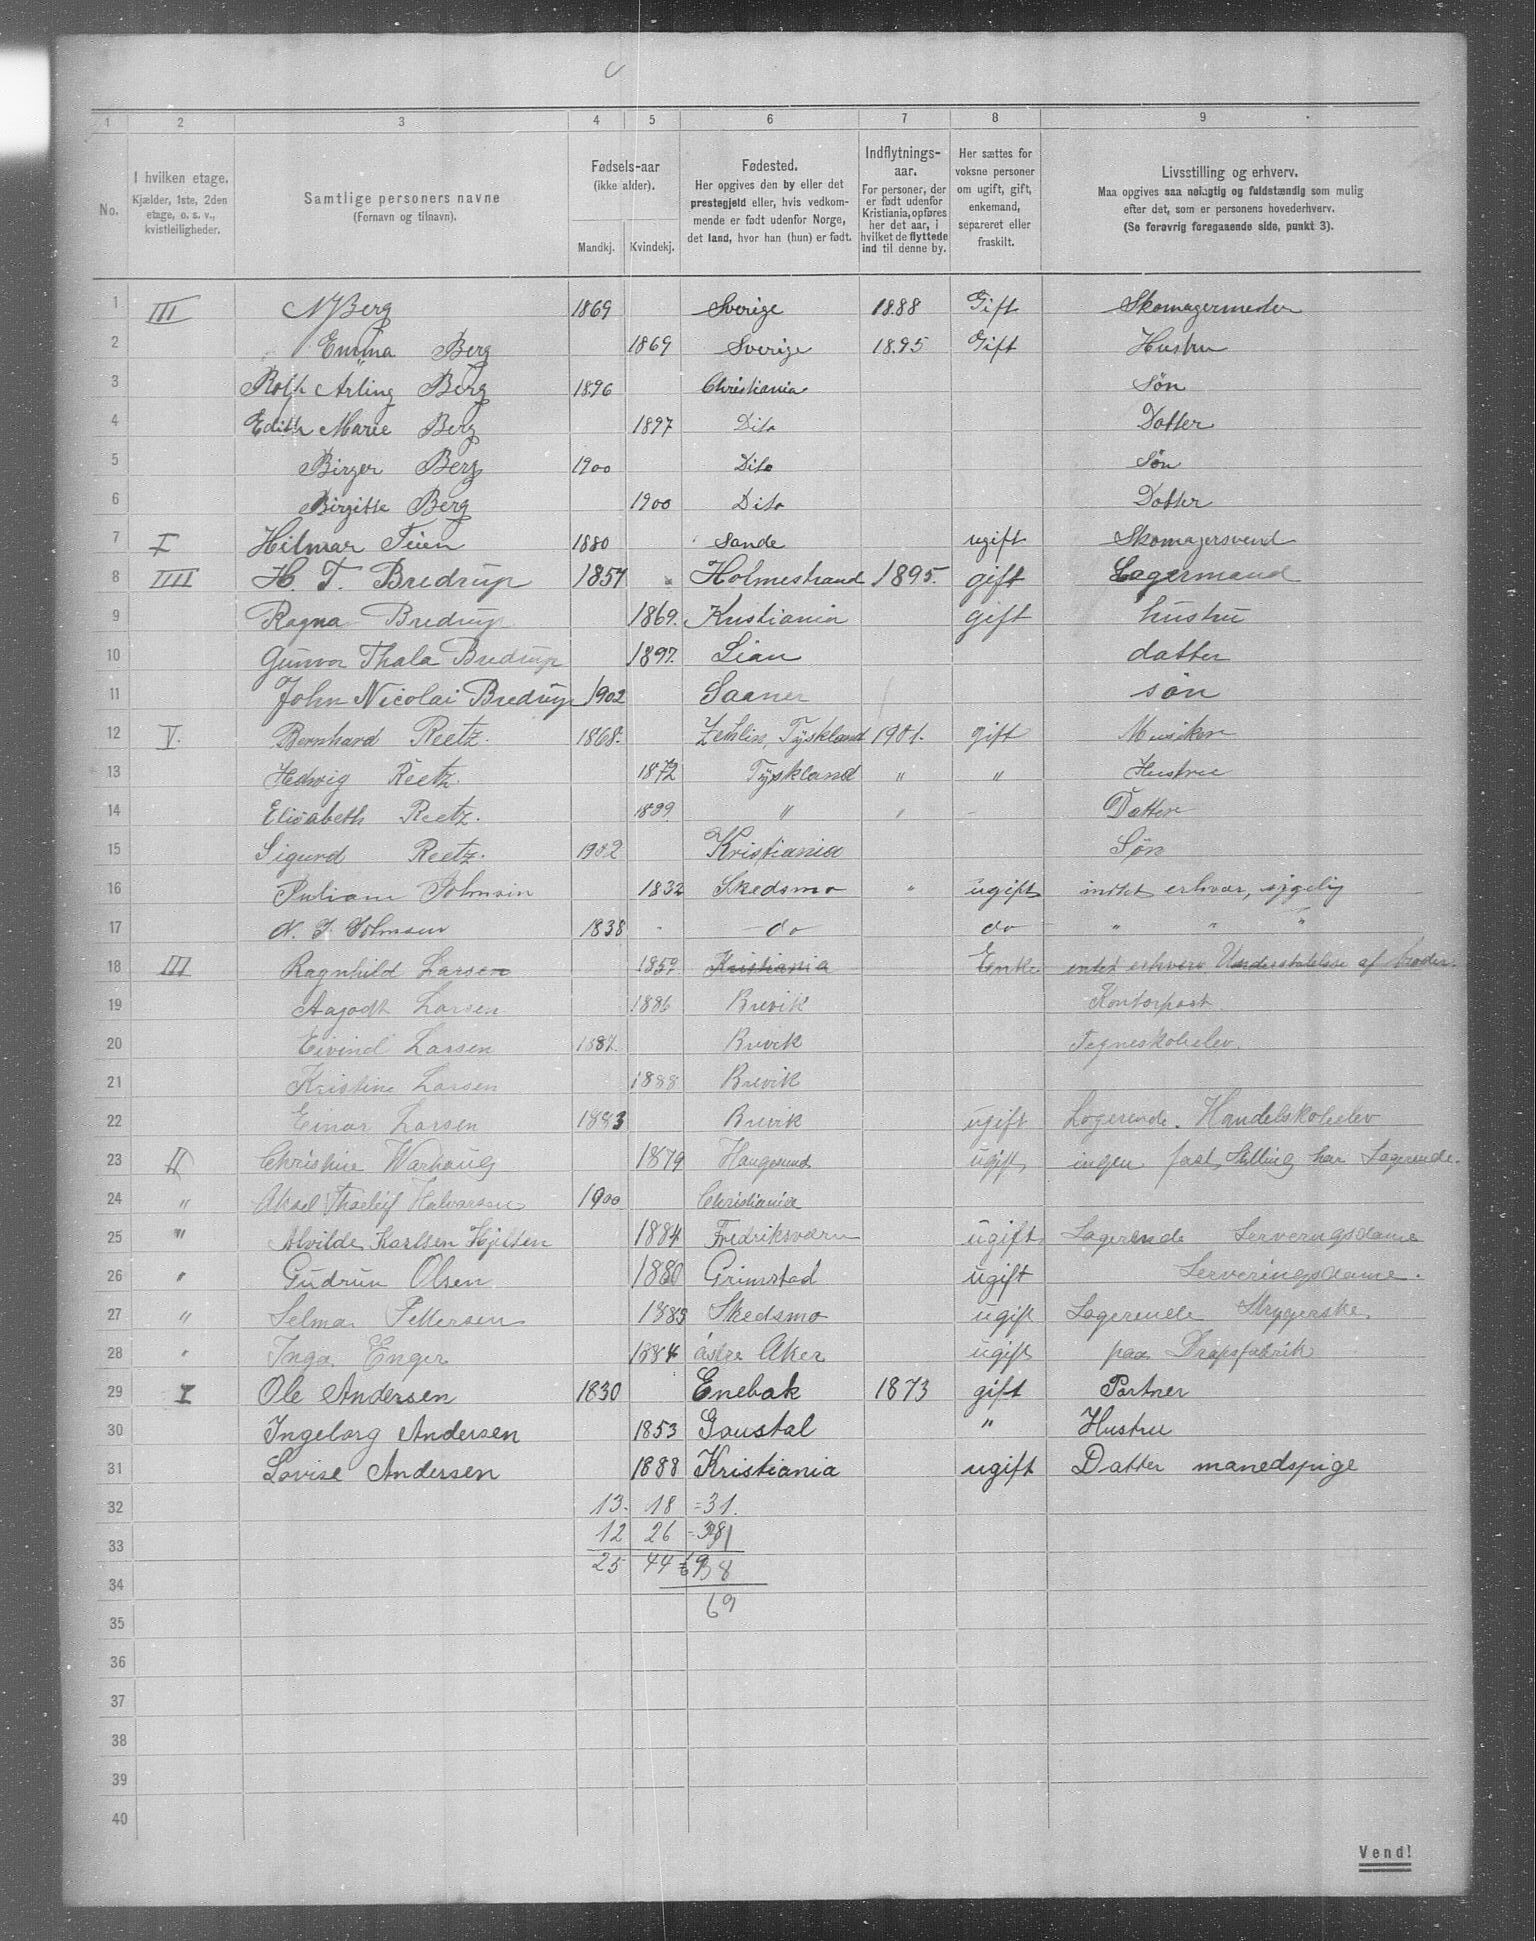 1 2 3 4 5 6 7 8 9
No.
I hvilken etage.
Kjælder, 1ste, 2den
etage, o. s. v.,
kvistleiligheder.
Samtlige personers navne
(Fornavn og tilnavn).
Fødsels-aar
(ikke alder).
Mandkj. Kvindekj.
Fødested.
Her opgives den by eller det
prestegjeld eller, hvis vedkom-
mende er født udenfor Norge,
det land, hvor han (hun) er født.
Indflytnings-
aar.
For personer, der
er født udenfor
Kristiania, opføres
her det aar, i
hvilket de flyttede
ind til denne by.
Her sættes for
voksne personer
om ugift, gift,
enkemand,
separeret eller
fraskilt.
Livsstilling og erhverv.
Maa opgives saa nøiagtig og fuldstændig som mulig
efter det, som er personens hovederhverv.
(Se forøvrig foregaaende side, punkt 3).
1 III Berg 1869 Sverige 1888 Gift Skomagermester
2 Emma Berg 1869 Sverige 1895 Gift Hustru
3 Rolf Arling Berg 1896 Christiania Søn
4 Edith Marie Berg 1897 Dito Datter
5 Birger Berg 1900 Dito Søn
6 Birgitte Berg 1900 Dito Datter
7 I Hilmar Teien 1880 Sande ugift Skomagersvend
8 IIII H. T. Bredrup 1857 Holmestrand 1895. gift Lagermand
9 Ragna Bredrup 1869. Kristiania gift hustru
10 Gunvor Thala Bredrup 1897. Lian datter
11 John Nicolai Bredrup 1902 Saaner søn
12 V. Bernhard Reetz. 1868. Zehlin, Tyskland 1901. gift Musiker
13 Hedwig Reetz. 1872 Tyskland " " Hustru
14 Elisabeth Reetz. 1899 " " Datter
15 Sigurd Reetz. 1902 Kristiania Søn
16 Juliane Johnsen 1832 Skedsmo " ugift intet erhver, sygelig
17 N. J. 1838 do do " " "
18 III Ragnhild Larsen 1859 Kristiania Enke intet erhverv Understøttelse af broder.
19 Aagodt Larsen 1886 Brevik Kontorpost
20 Eivind Larsen 1887. Brevik Tegneskoleelev.
21 Kristine Larsen 1888 Brevik
22 Einar Larsen 1883 Brevik ugift Logerende. Handelskoleelev
23 II Christine Warhaug 1879 Haugesund ugift ingen fast Stilling har Logerende.
24 " Aksel Thorleif Halvorsen 1900 Christiania
25 " Alvilde Karlsen Hjelsen 1884 Fredriksværn ugift Logerende Serveringsdame
26 " Gudrun Olsen 1880 Grimstad ugift Serveringsdame.
27 " Selma Pettersen 1885 Skedsmo ugift Logerende Strygerske.
28 " Inga Enger 1884 østre Aker ugift paa Dropsfabrik
29 I Ole Andersen 1830 Enebak 1873 gift Portner
30 Ingeborg Andersen 1853 Gaustal " Hustru
31 Lovise Andersen 1888 Kristiania ugift Datter manedspige
32 13. 18 =31.
33 12 26 - 38
25 44 69 38
34
69
35
36
37
38
39
40
Vend!